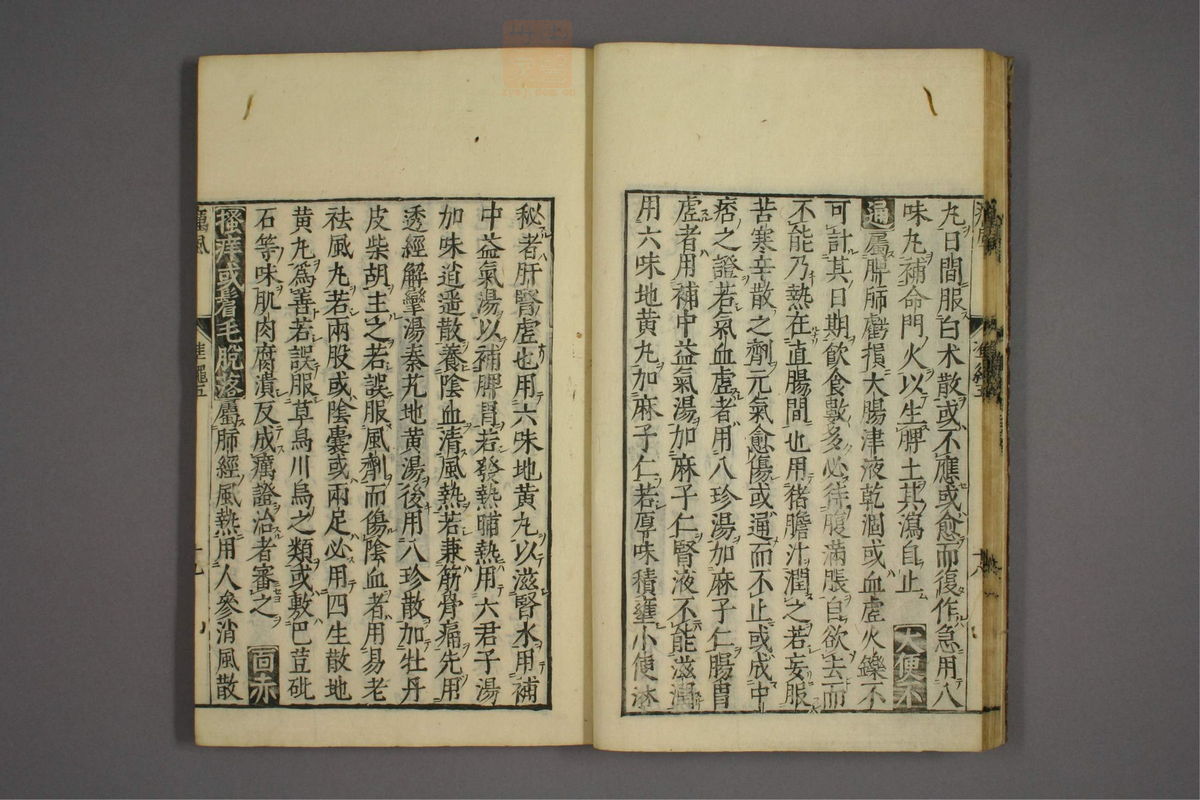 丸日間服白术散或不應或愈而復作急用八
味丸補命門火以生脾土其瀉自止 大便不
通屬脾肺虧損大腸津液乾涸或血虛火鑠不
可計其日期飲食數多必待腹滿脹自欲去而
不能乃熱在直腸間也用猪膽汁潤之若妄服
苦寒辛散之劑元氣愈傷或通而不止或成中
痞之證若氣血虛者用八珍湯加麻子仁腸胃
虛者用補中益氣湯加麻子仁腎液不能滋潤
用六味地黃丸加麻子仁若厚味積壅小便淋
秘者肝腎虛也用六味地黃丸以滋腎水用補
中益氣湯以補脾胃若發熱晡熱用六君子湯
加味逍遙散養陰血清風熱若兼筋骨痛先用
透經解攣湯秦艽地黃湯後用八珍散加牡丹
皮柴胡主之若誤服風劑而傷陰血者用易老
祛風丸若兩股或陰囊或兩足必用四生散地
黃丸為善若誤服草烏川烏之類或敷巴荳砒
石等味肌肉腐潰反成癘證治者審之 面赤
搔痒或眉毛脫落屬肺經風熱用人參消風散
癘風 準繩五